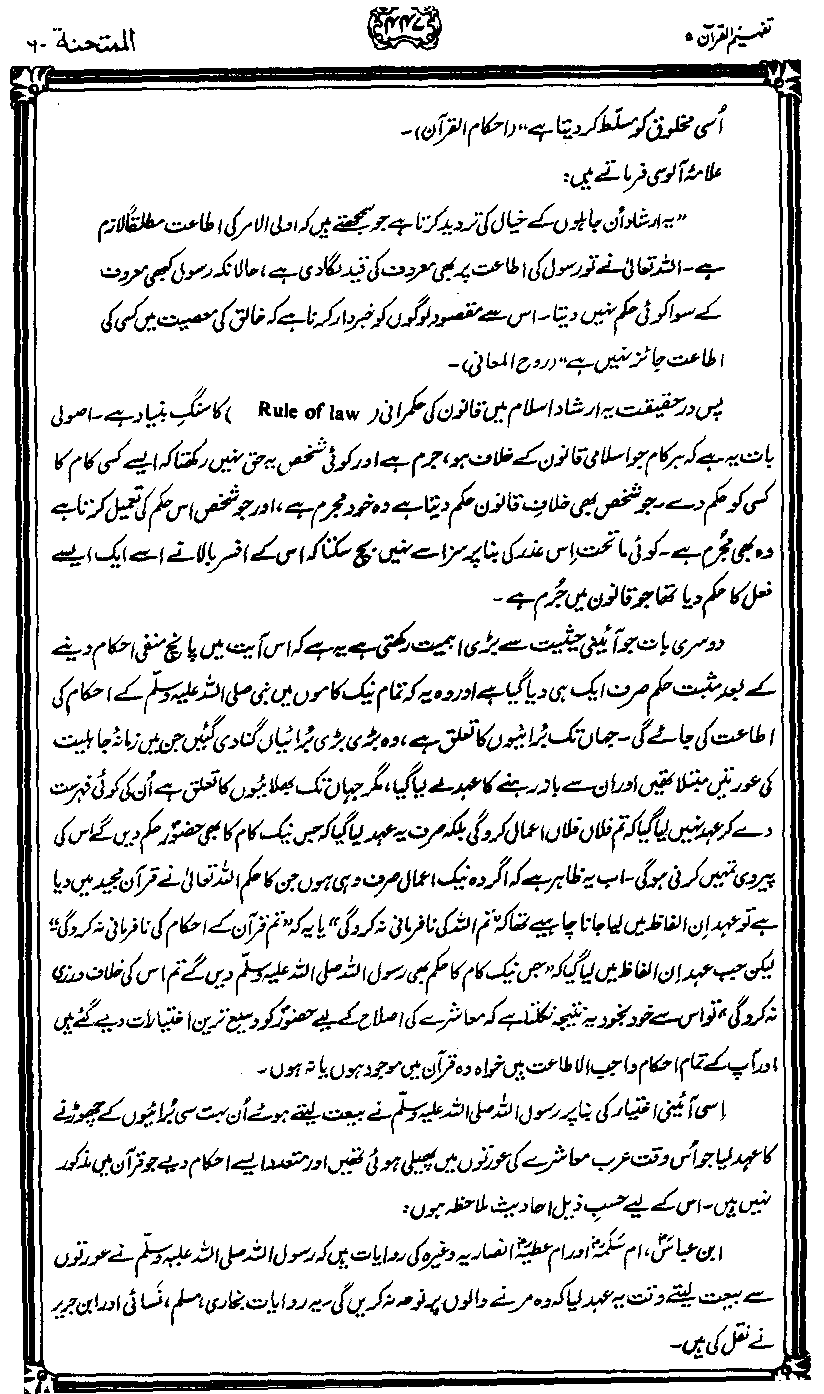 تفہیم القرآن ۵
۴۴۷
الممتحنۃ ۶۰
اُسی مخلوق کو مسلّط کر دیتا ہے“ (احکام القرآن)۔
علامہ آلوسی فرماتے ہیں:
”یہ ارشاد اُن جاہلوں کے خیال کی تردید کرتا ہے جو سمجھتے ہیں کہ اولی الامر کی اطاعت مطلقاً لازم
ہے۔ اللہ تعالیٰ نے تو رسول کی اطاعت پر بھی معروف کی قید لگا دی ہے، حالانکہ رسول کبھی معروف
کے سوا کوئی حکم نہیں دیتا۔ اس سے مقصود لوگوں کو خبردار کرنا ہے کہ خالق کی معصیت میں کسی کی
اطاعت جائز نہیں ہے“ (روح المعانی)۔
پس درحقیقت یہ ارشاد اسلام میں قانون کی حکمرانی (Rule of law) کا سنگِ بنیاد ہے۔ اصولی
بات یہ ہے کہ ہر کام جو اسلامی قانون کے خلاف ہو، جرم ہے اور کوئی شخص یہ حق نہیں رکھتا کہ ایسے کسی کام کا
کسی کو حکم دے۔ جو شخص بھی خلافِ قانون حکم دیتا ہے وہ خود مجرم ہے، اور جو شخص اس حکم کی تعمیل کرتا ہے
وہ بھی مجرم ہے۔ کوئی ماتحت اِس عذر کی بنا پر سزا سے نہیں بچ سکتا کہ اس کے افسرِ بالا نے اسے ایک ایسے
فعل کا حکم دیا تھا جو قانون میں جُرم ہے۔
دوسری بات جو آئینی حیثیت سے بڑی اہمیت رکھتی ہے یہ ہے کہ اس آیت میں پانچ منفی احکام دینے
کے بعد مثبت حکم صرف ایک ہی دیا گیا ہے اور وہ یہ کہ تمام نیک کاموں میں نبی صلی اللہ علیہ وسلّم کے احکام کی
اطاعت کی جائے گی۔ جہاں تک بُرائیوں کا تعلق ہے، وہ بڑی بڑی بُرائیاں گنا دی گئیں جن میں زمانۂ جاہلیت
کی عورتیں مبتلا تھیں اور ان سے باز رہنے کا عہد لے لیا گیا، مگر جہاں تک بھلائیوں کا تعلق ہے اُن کی کوئی فہرست
دے کر عہد نہیں لیا گیا کہ تم فلاں فلاں اعمال کرو گی بلکہ صرف یہ عہد لیا گیا کہ جس نیک کام کا بھی حضورؐ حکم دیں گے اس کی
پیروی تمہیں کرنی ہوگی۔ اب یہ ظاہر ہے کہ اگر وہ نیک اعمال صرف وہی ہوں جن کا حکم اللہ تعالیٰ نے قرآن مجید میں دیا
ہے تو عہد اِن الفاظ میں لیا جانا چاہیے تھا کہ ”تم اللہ کی نافرمانی نہ کرو گی“ یا یہ کہ ”تم قرآن کے احکام کی نافرمانی نہ کرو گی“
لیکن جب عہد اِن الفاظ میں لیا گیا کہ ”جس نیک کام کا حکم بھی رسول اللہ صلی اللہ علیہ وسلّم دیں گے تم اس کی خلاف ورزی
نہ کرو گی“ تو اس سے خود بخود یہ نتیجہ نکلتا ہے کہ معاشرے کی اصلاح کے لیے حضورؐ کو وسیع ترین اختیارات دیے گئے ہیں
اور آپ کے تمام احکام واجب الاطاعت ہیں خواہ وہ قرآن میں موجود ہوں یا نہ ہوں۔
اِسی آئینی اختیار کی بنا پر رسول اللہ صلی اللہ علیہ وسلّم نے بیعت لیتے ہوئے اُن بہت سی بُرائیوں کے چھوڑنے
کا عہد لیا جو اُس وقت عرب معاشرے کی عورتوں میں پھیلی ہوئی تھیں اور متعدد ایسے احکام دیے جو قرآن میں مذکور
نہیں ہیں۔ اس کے لیے حسبِ ذیل احادیث ملاحظہ ہوں:
ابن عباسؓ، ام سَلَمہؓ اور ام عطیہؓ انصاریہ وغیرہ کی روایات ہیں کہ رسول اللہ صلی اللہ علیہ وسلّم نے عورتوں
سے بیعت لیتے وقت یہ عہد لیا کہ وہ مرنے والوں پر نوحہ نہ کریں گی۔ یہ روایات بخاری، مسلم، نَسائی اور ابن جریر
نے نقل کی ہیں۔